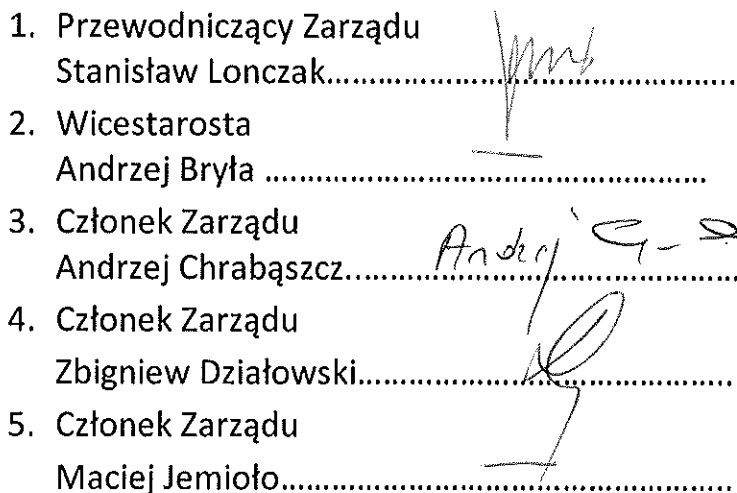 1. Przewodniczący Zarządu
Stanisław Lonczak..............................................
2. Wicestarosta
Andrzej Bryła ..................................................
3. Członek Zarządu
Andrzej Chrabąszcz.............................................. Andrzej
4. Członek Zarządu
Zbigniew Działowski..............................................
5. Członek Zarządu
Maciej Jemioło..................................................